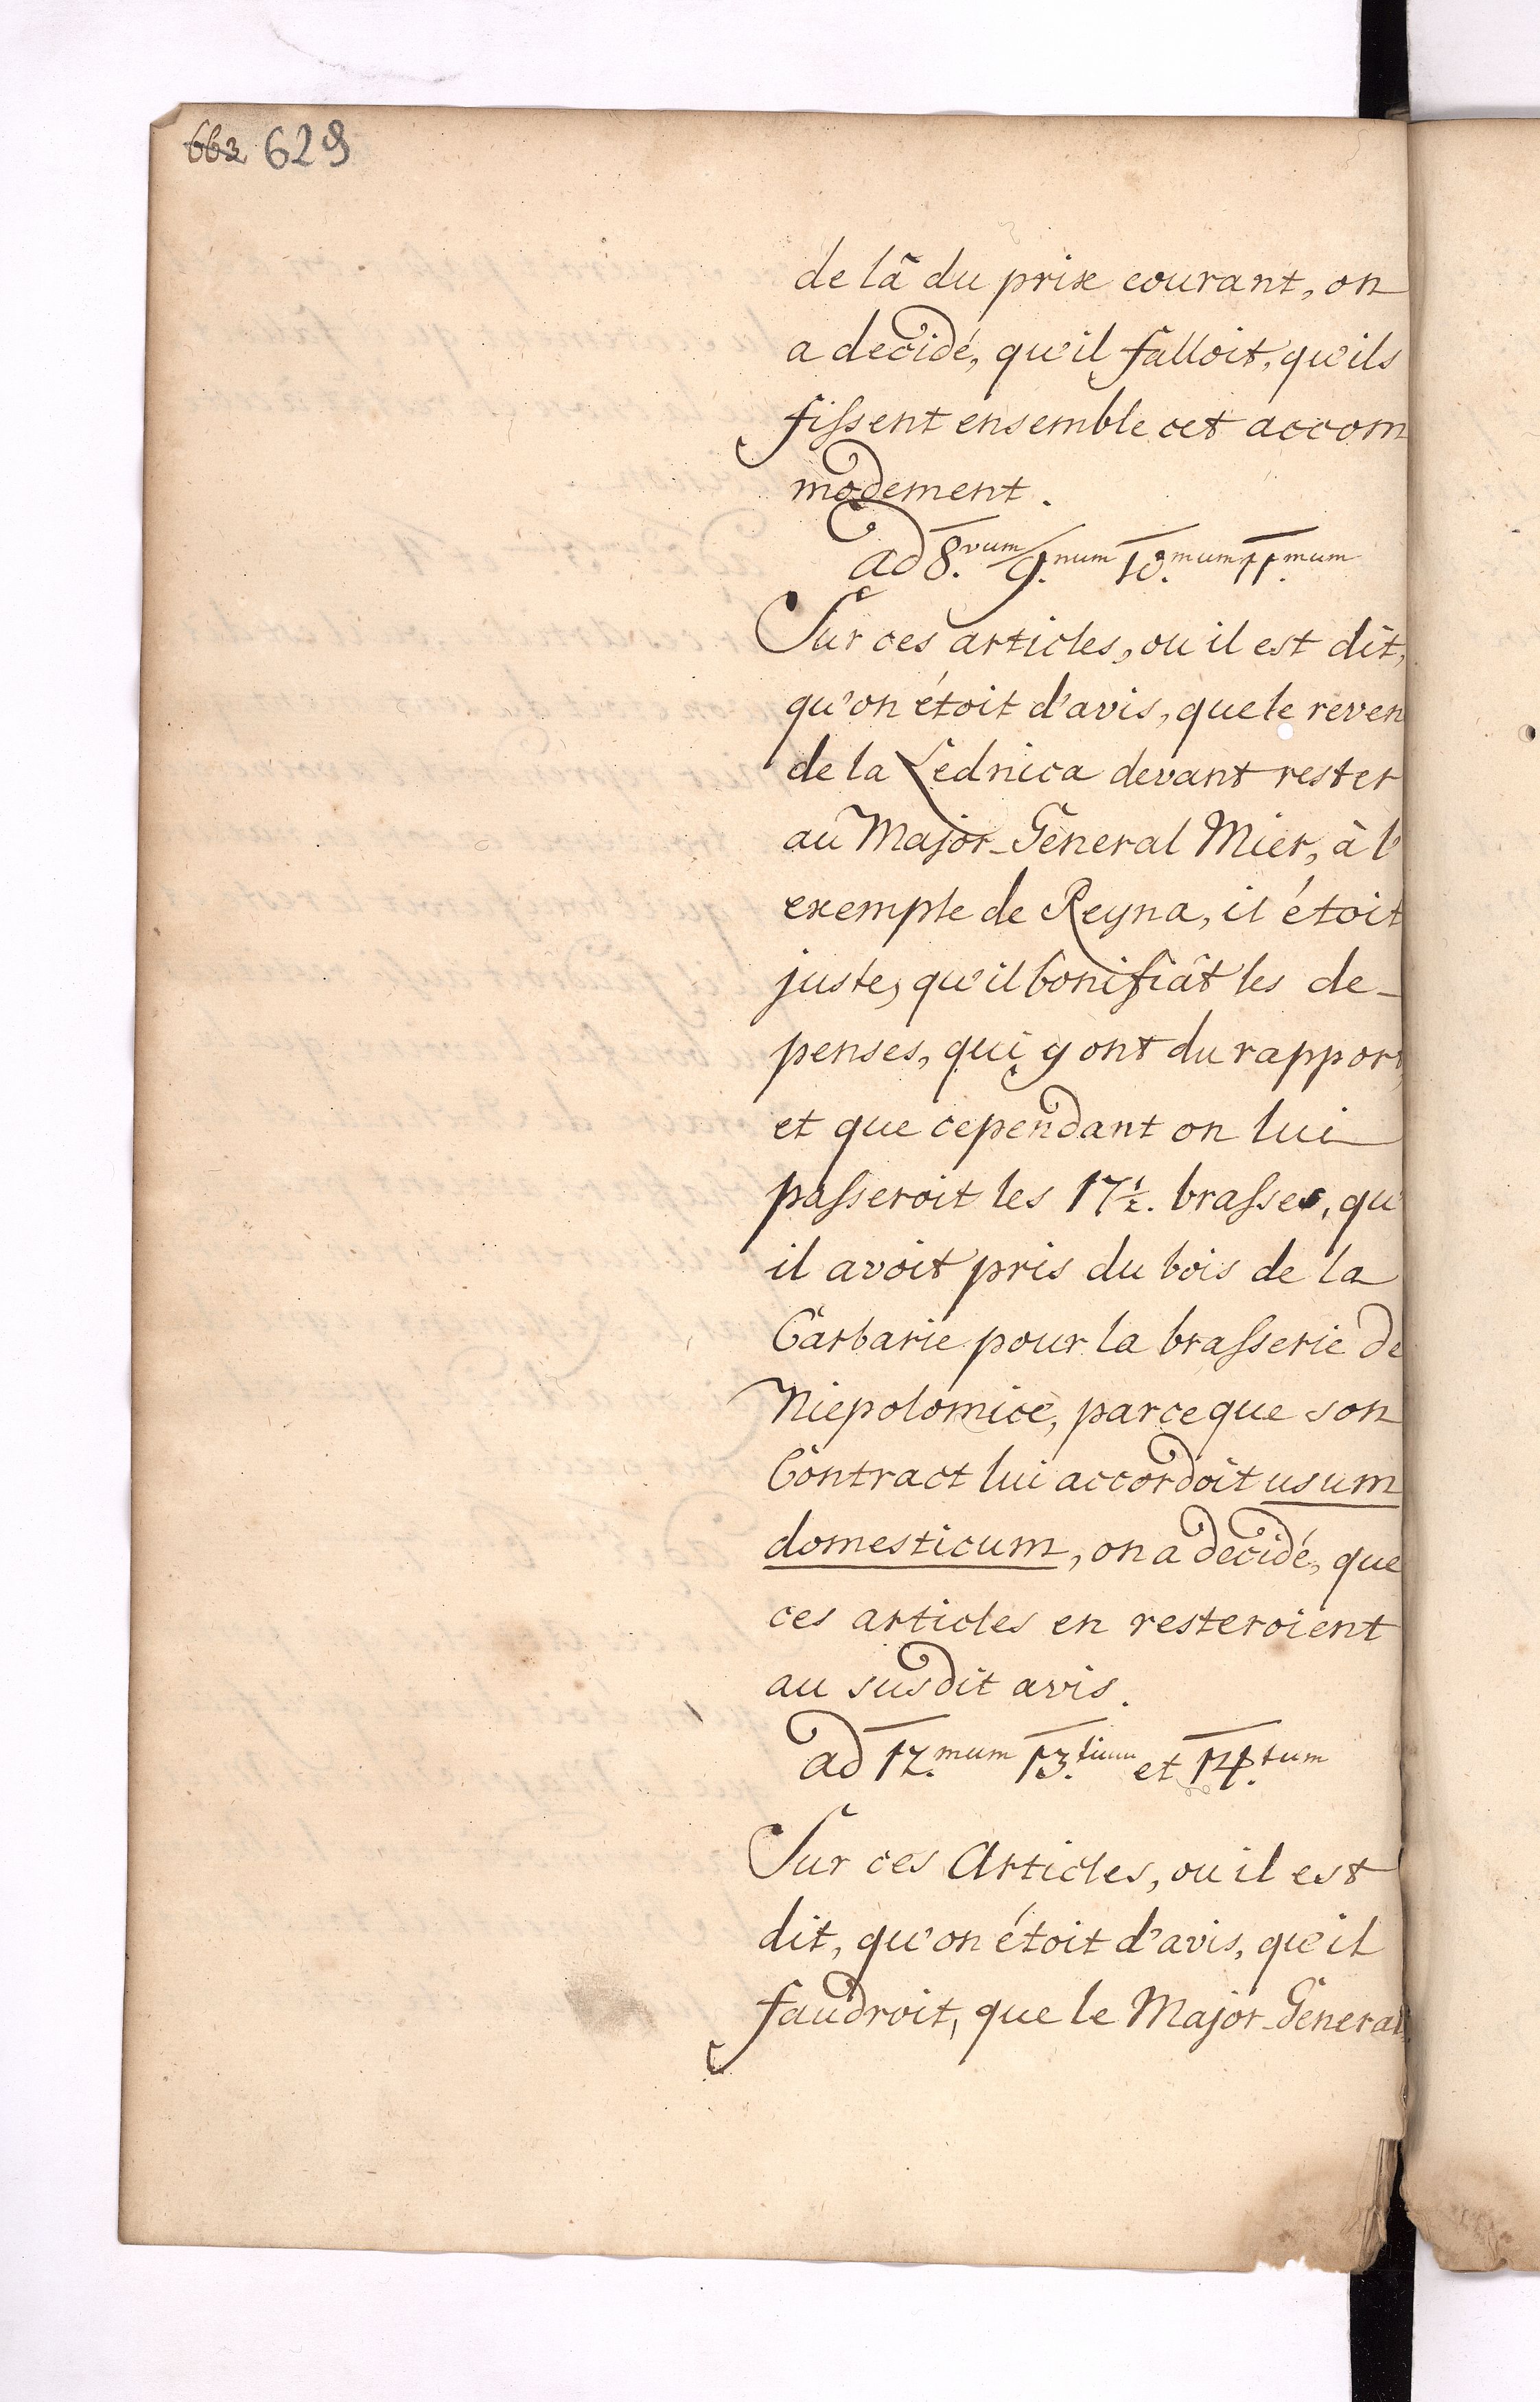 662 629
de là du prix courant, on
a decidé, qu'il falloit, qu'ils
fissent ensemble cet accom
modement.
ad 8.vum 9.num 10.mum 11.mum
Sur ces articles, ou il est dit,
qu'on étoit d'avis, que le reven
de la Lednica devant rester
au Major-General Mier, à l'
exemple de Reyna, il étoit
juste, qu'il bonifiât les de-
penses, qui y ont du rapport,
et que cependant on lui
passeroit les 17½. brasses, qu'
il avoit pris du bois de la
Garbarie pour la brasserie de
Niepolomice, parceque son
Contract lui accordoit usum
domesticum, on a decidé, que
ces articles en resteroient
au susdit avis.
ad 12.mum 13.tium et 14.tum
Sur ces Articles, ou il est
dit, qu'on étoit d'avis, qu'il
faudroit, que le Major-General